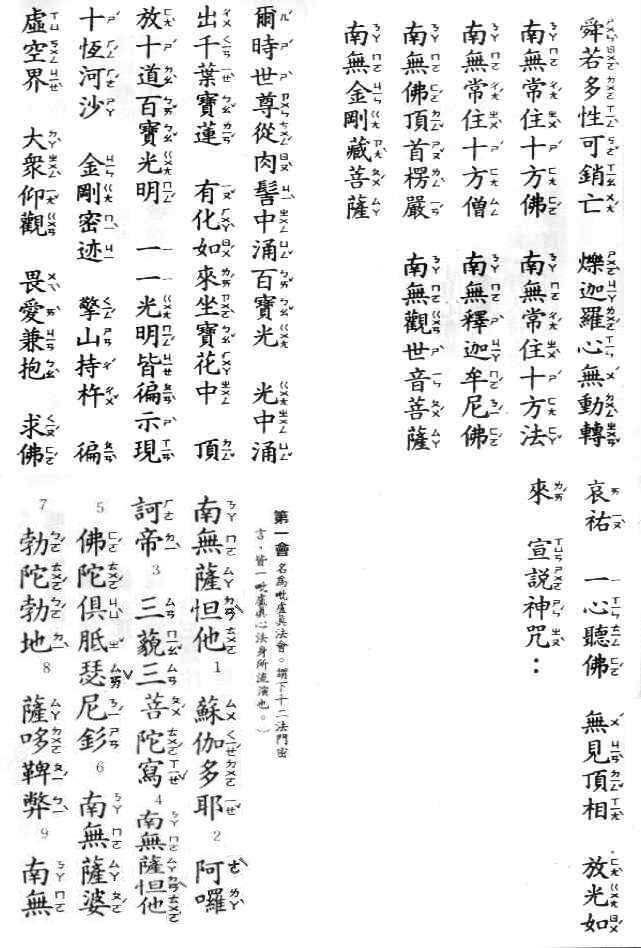 舜若多性可銷亡　爍迦羅心無動轉
南無常住十方佛　南無常住十方法
南無常住十方僧　南無釋迦牟尼佛
南無佛頂首楞嚴　南無觀世音菩薩
南無金剛藏菩薩
爾時世尊從肉髻中涌百寶光　光中涌
出千葉寶蓮　有化如來坐寶花中　頂
放十道百寶光明　一一光明皆徧示現
十恆河沙　金剛密迹　擎山持杵　徧
虛空界　大衆仰觀　畏愛兼抱　求佛
哀祐　一心聽佛　無見頂相　放光如
來　宣說神咒：
第一會 名為毗盧真法會。謂下十二法門密
言，皆一毗盧真心法身所流演也。）
南無薩怛他 1 蘇伽多耶 2 阿囉
訶帝 3 三藐三菩陀寫 4 南無薩怛他
5 佛陀俱胝瑟尼釤 6 南無薩婆
7 勃陀勃地 8 薩哆鞞弊 9 南無